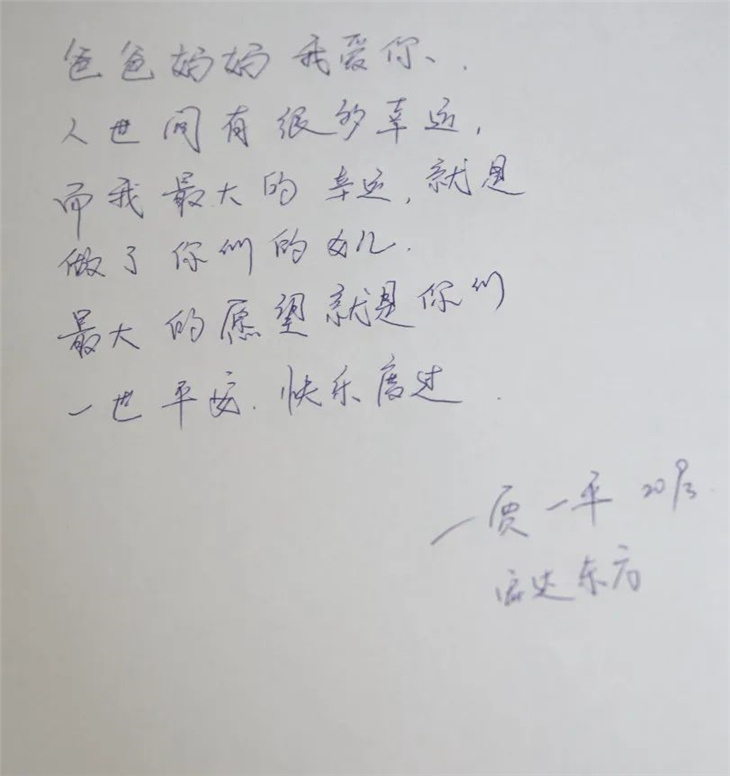 爸爸妈妈我爱你、.
人世间有很多幸运,
而我最大的幸运,就是
做了你们的女儿.
最大的愿望就是你们
一世平安.快乐度过.
一贾一平
东方